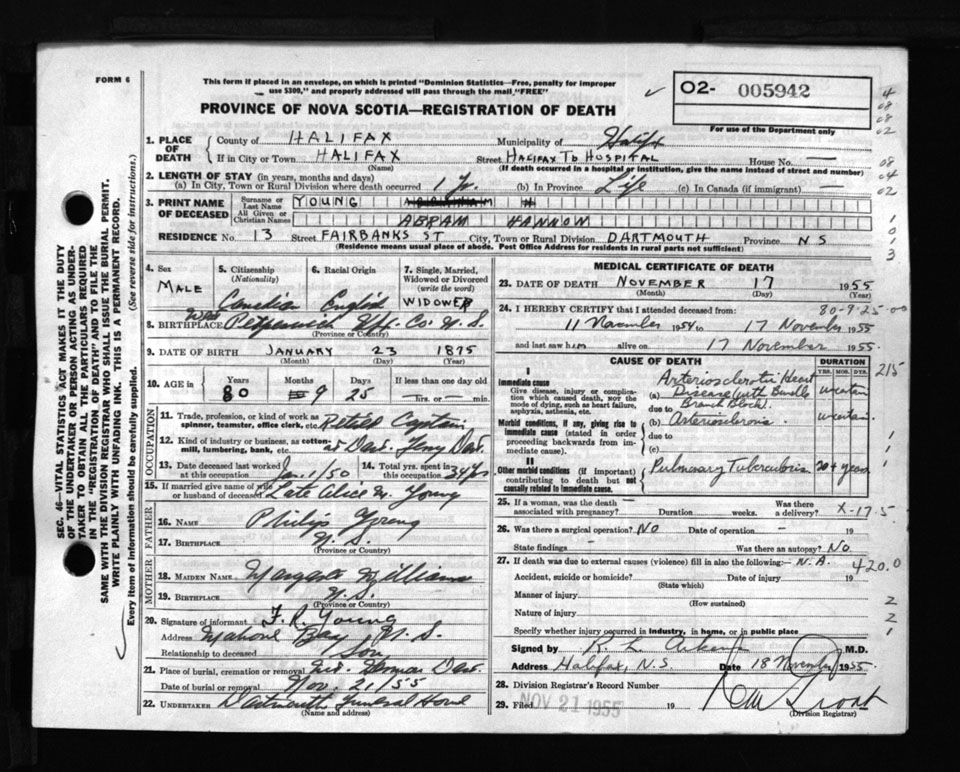 FORM 6
This form if placed in an envelope, on which is printed "Dominion Statistics—Free, penalty for improper
use $300," and properly addressed will pass through the mail "FREE"
PROVINCE OF NOVA SCOTIA—REGISTRATION OF DEATH
02- 005942
For use of the Department only
4
08
08
02
08
04
02
1
0
1
3
SEC. 46—VITAL STATISTICS ACT MAKES IT THE DUTY
OF THE UNDERTAKER OR PERSON ACTING AS UNDER-
TAKER TO OBTAIN ALL THE PARTICULARS REQUIRED
IN THE "REGISTRATION OF DEATH" AND TO FILE THE
SAME WITH THE DIVISION REGISTRAR WHO SHALL ISSUE THE BURIAL PERMIT.
WRITE PLAINLY WITH UNFADING INK. THIS IS A PERMANENT RECORD.
Every item of information should be carefully supplied. (See reverse side for instructions.)
1. PLACE OF DEATH County of HALIFAX Municipality of Halifx
If in City or Town HALIFAX Street HALIFAX TB HOSPITAL House No. —
(Name) (If death occurred in a hospital or institution, give the name instead of street and number)
2. LENGTH OF STAY (in years, months and days)
(a) In City, Town or Rural Division where death occurred 1 Yr. (b) In Province Life (c) In Canada (if immigrant) —
3. PRINT NAME OF DECEASED Surname or Last Name YOUNG H
All Given or Christian Names ABRAM HANNOW
RESIDENCE No. 13 Street FAIRBANKS ST City, Town or Rural Division DARTMOUTH Province N S
(Residence means usual place of abode. Post Office Address for residents in rural parts not sufficient)
4. Sex MALE
5. Citizenship (Nationality) Canadian
6. Racial Origin English
7. Single, Married, Widowed or Divorced (write the word) WIDOWER
8. BIRTHPLACE West Petpeswick Hfx. Co. N. S.
(Province or Country)
9. DATE OF BIRTH JANUARY 23 1875
(Month) (Day) (Year)
10. AGE in Years 80 Months 9 Days 25 If less than one day old — hrs. or — min.
OCCUPATION
11. Trade, profession, or kind of work as spinner, teamster, office clerk, etc. Retired Captain
12. Kind of industry or business, as cotton-mill, lumbering, bank, etc. at Dart. Ferry Dart.
13. Date deceased last worked at this occupation Jan. 1/50 14. Total yrs. spent in this occupation 34 yrs
15. If married give name of wife or husband of deceased Late Alice M. Young
FATHER
16. NAME Philip Young
17. BIRTHPLACE N. S.
(Province or Country)
MOTHER
18. MAIDEN NAME Margaret Williams
19. BIRTHPLACE N. S.
(Province or Country)
20. Signature of informant F. R. Young
Address Mahone Bay, N. S.
Relationship to deceased Son
21. Place of burial, cremation or removal Mt. Hermon Dart.
Date of burial or removal Nov. 21/55
22. UNDERTAKER Dartmouth Funeral Home
(Name and address)
MEDICAL CERTIFICATE OF DEATH
23. DATE OF DEATH NOVEMBER 17 1955
(Month) (Day) (Year)
24. I HEREBY CERTIFY that I attended deceased from: 80-9-25-00
11 November 1954 to 17 November 1955
and last saw him alive on 17 November 1955.
CAUSE OF DEATH
DURATION
YRS. MOS. DYS.
215
I
Immediate cause
Give disease, injury or complication which caused death, not the mode of dying, such as heart failure, asphyxia, asthenia, etc.
(a) Arteriosclerotic Heart Disease with Bundle Branch Block. uncertain
due to
Morbid conditions, if any, giving rise to immediate cause (stated in order proceeding backwards from immediate cause).
(b) Arteriosclerosis. uncertain
due to
(c)
II
Other morbid conditions (if important) contributing to death but not causally related to immediate cause.
Pulmonary Tuberculosis 20+ years
1
1
1
25. If a woman, was the death associated with pregnancy? — Duration weeks. Was there a delivery? X-17.5
26. Was there a surgical operation? NO Date of operation — 19
State findings - Was there an autopsy? No.
27. If death was due to external causes (violence) fill in also the following:— N.A. 420.0
Accident, suicide or homicide? Date of injury 19
(State which)
Manner of injury
(How sustained)
Nature of injury
Specify whether injury occurred in industry, in home, or in public place
2
2
1
Signed by M.D.
Address Halifax, N.S. Date 18 November 1955
28. Division Registrar's Record Number
29. Filed NOV 21 1955 19
(Division Registrar)